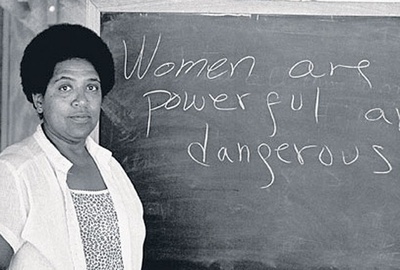 Women are
powerful a
dangerous